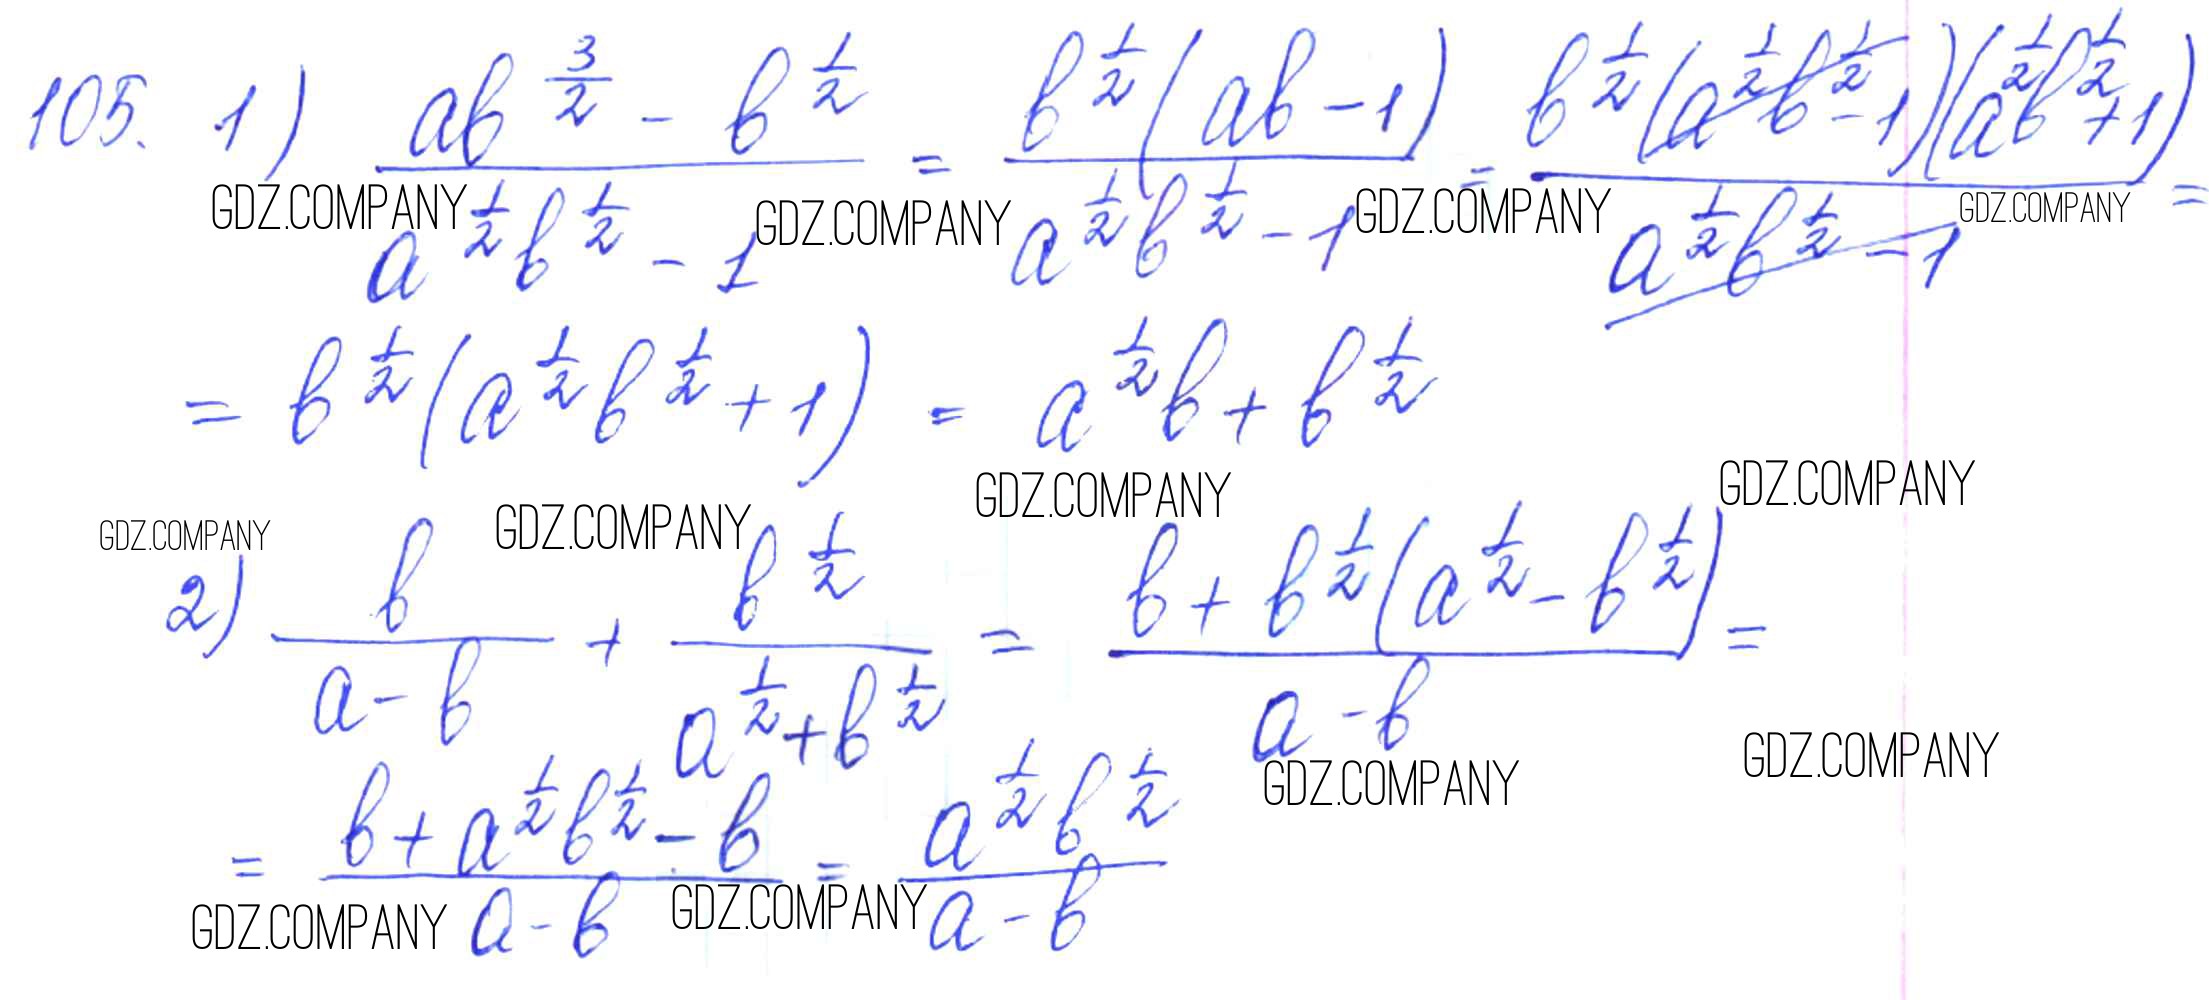 105. 1) \frac{ab^{\frac{3}{2}} - b^{\frac{1}{2}}}{a^{\frac{1}{2}}b^{\frac{1}{2}} - 1} = \frac{b^{\frac{1}{2}}(ab - 1)}{a^{\frac{1}{2}}b^{\frac{1}{2}} - 1} = \frac{b^{\frac{1}{2}}(a^{\frac{1}{2}}b^{\frac{1}{2}} - 1)(a^{\frac{1}{2}}b^{\frac{1}{2}} + 1)}{a^{\frac{1}{2}}b^{\frac{1}{2}} - 1} =
GDZ.COMPANY GDZ.COMPANY GDZ.COMPANY GDZ.COMPANY
= b^{\frac{1}{2}}(a^{\frac{1}{2}}b^{\frac{1}{2}} + 1) = a^{\frac{1}{2}}b + b^{\frac{1}{2}}
GDZ.COMPANY GDZ.COMPANY GDZ.COMPANY GDZ.COMPANY
2) \frac{b}{a - b} + \frac{b^{\frac{1}{2}}}{a^{\frac{1}{2}} + b^{\frac{1}{2}}} = \frac{b + b^{\frac{1}{2}}(a^{\frac{1}{2}} - b^{\frac{1}{2}})}{a - b} =
GDZ.COMPANY GDZ.COMPANY
= \frac{b + a^{\frac{1}{2}}b^{\frac{1}{2}} - b}{a - b} = \frac{a^{\frac{1}{2}}b^{\frac{1}{2}}}{a - b}
GDZ.COMPANY GDZ.COMPANY